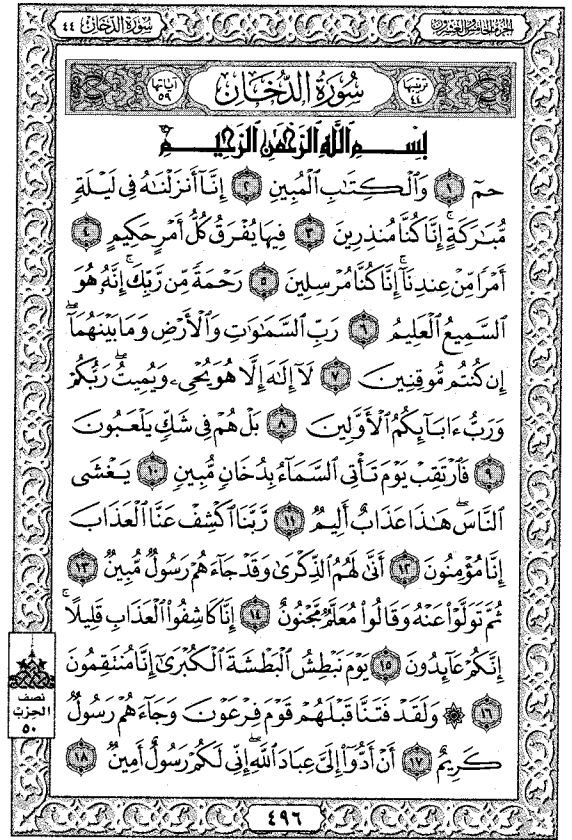 سُورَةُ الدُّخَانِ ٤٤
الجزء الخامس والعشرون
ترتيبها ٤٤ سُورَةُ الدُّخَانِ آياتها ٥٩
بِسْمِ اللَّهِ الرَّحْمَٰنِ الرَّحِيمِ
حمٓ ١ وَٱلْكِتَٰبِ ٱلْمُبِينِ ٢ إِنَّآ أَنزَلْنَٰهُ فِى لَيْلَةٍ
مُّبَٰرَكَةٍ ۚ إِنَّا كُنَّا مُنذِرِينَ ٣ فِيهَا يُفْرَقُ كُلُّ أَمْرٍ حَكِيمٍ ٤
أَمْرًا مِّنْ عِندِنَآ ۚ إِنَّا كُنَّا مُرْسِلِينَ ٥ رَحْمَةً مِّن رَّبِّكَ ۚ إِنَّهُۥ هُوَ
ٱلسَّمِيعُ ٱلْعَلِيمُ ٦ رَبِّ ٱلسَّمَٰوَٰتِ وَٱلْأَرْضِ وَمَا بَيْنَهُمَآ ۖ
إِن كُنتُم مُّوقِنِينَ ٧ لَآ إِلَٰهَ إِلَّا هُوَ يُحْىِۦ وَيُمِيتُ ۖ رَبُّكُمْ
وَرَبُّ ءَابَآئِكُمُ ٱلْأَوَّلِينَ ٨ بَلْ هُمْ فِى شَكٍّ يَلْعَبُونَ
٩ فَٱرْتَقِبْ يَوْمَ تَأْتِى ٱلسَّمَآءُ بِدُخَانٍ مُّبِينٍ ١٠ يَغْشَى
ٱلنَّاسَ ۖ هَٰذَا عَذَابٌ أَلِيمٌ ١١ رَّبَّنَا ٱكْشِفْ عَنَّا ٱلْعَذَابَ
إِنَّا مُؤْمِنُونَ ١٢ أَنَّىٰ لَهُمُ ٱلذِّكْرَىٰ وَقَدْ جَآءَهُمْ رَسُولٌ مُّبِينٌ ١٣
ثُمَّ تَوَلَّوْا۟ عَنْهُ وَقَالُوا۟ مُعَلَّمٌ مَّجْنُونٌ ١٤ إِنَّا كَاشِفُوا۟ ٱلْعَذَابِ قَلِيلًا ۚ
إِنَّكُمْ عَآئِدُونَ ١٥ يَوْمَ نَبْطِشُ ٱلْبَطْشَةَ ٱلْكُبْرَىٰٓ إِنَّا مُنتَقِمُونَ
١٦ ۞ وَلَقَدْ فَتَنَّا قَبْلَهُمْ قَوْمَ فِرْعَوْنَ وَجَآءَهُمْ رَسُولٌ
كَرِيمٌ ١٧ أَنْ أَدُّوٓا۟ إِلَىَّ عِبَادَ ٱللَّهِ ۖ إِنِّى لَكُمْ رَسُولٌ أَمِينٌ ١٨
نصف
الحزب
٥٠
٤٩٦